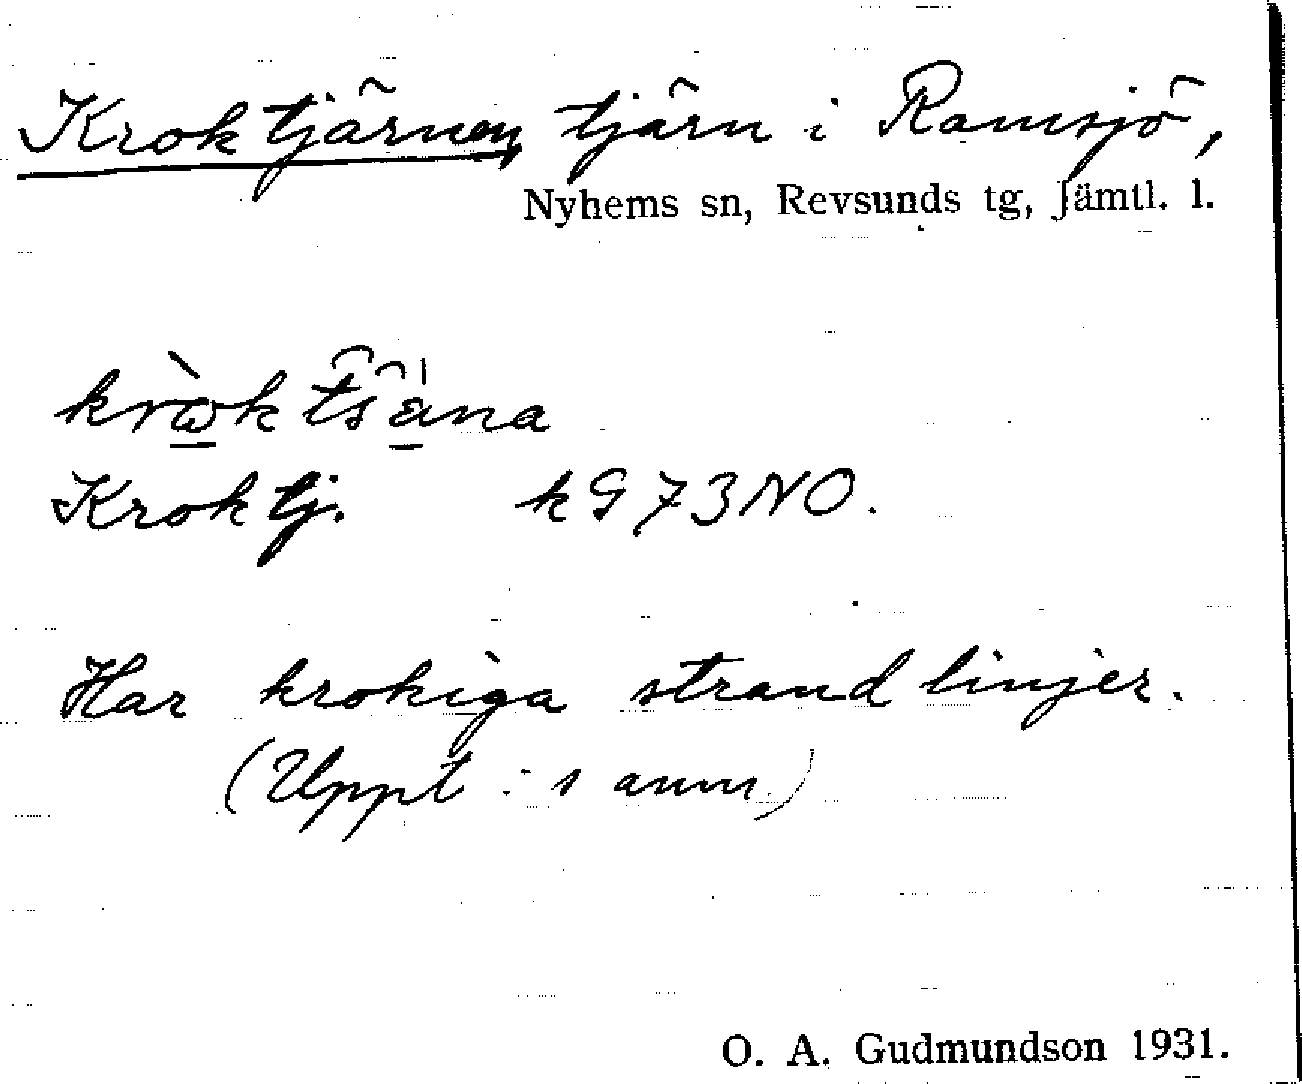 Kroktjärnen, tjärn i Ramsjö,
Nyhems sn, Revsunds tg, Jämtl. l.
Kroktj. kG 73 NO.
Har krokiga strandlinjer.
(Uppt: s anm.)
O. A. Gudmundson 1931.